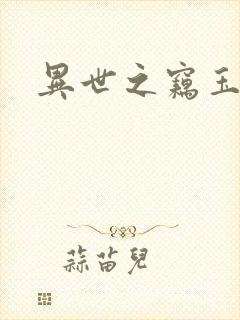 異世之竊玉
蒜苗兒